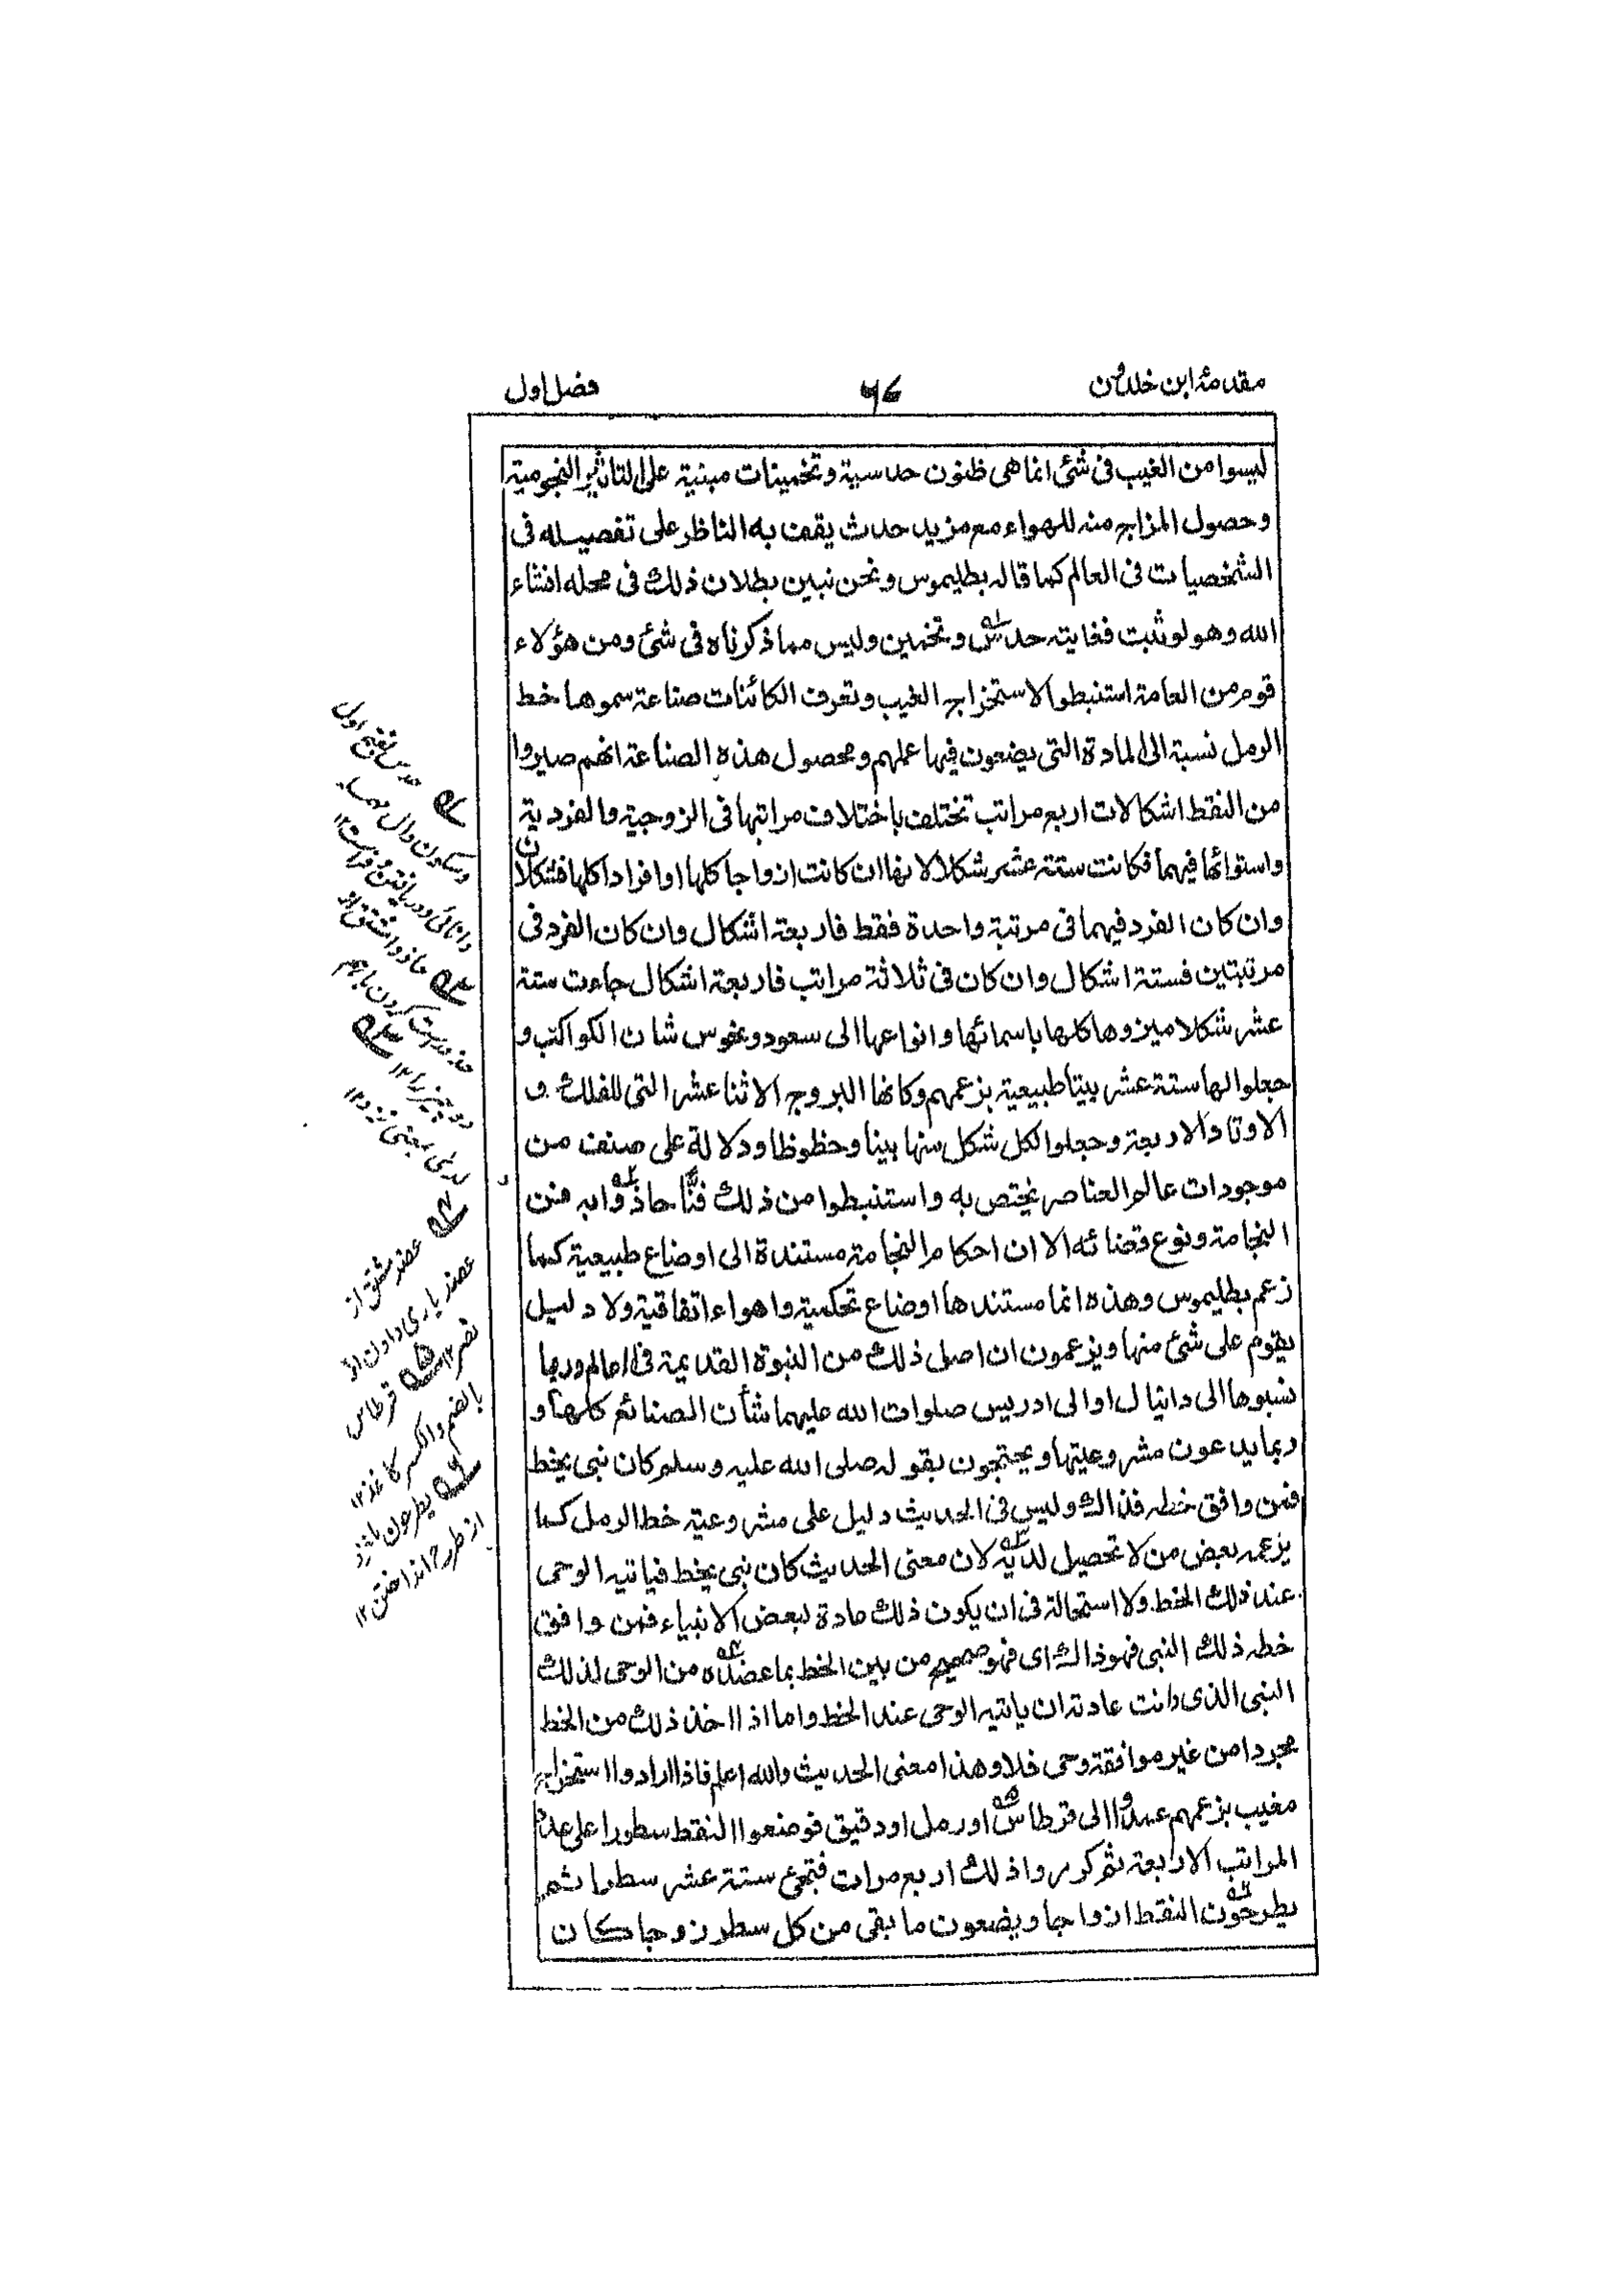 مقدمۂ ابن خلدون ۶۷ فصل اول
ليسوا من الغيب فی شئ انما هی ظنون حدسية وتخمينات مبنية على التاثير النجومية
وحصول المزاج منه للهواء مع مزيد حدث يقف به الناظر على تفصيله فی
الشخصيات فی العالم كما قاله بطليموس ونحن نبين بطلان ذلك فی محله انشاء
الله وهو لو ثبت فغايته حدس وتخمين وليس مما ذكرناه فی شئ ومن هؤلاء
قوم من العامة استنبطوا لاستخراج الغيب وتعرف الكائنات صناعة سموها خط
الرمل نسبة الى المادة التی يضعون فيها عملهم ومحصول هذه الصناعة انهم صيروا
من النقط اشكالات اربع مراتب تختلف باختلاف مراتبها فی الزوجية والفردية
واستوائها فيهما فكانت ستة عشر شكلا لانها ان كانت ازواجا كلها او افرادا كلها فشكلان
وان كان الفرد فيهما فی مرتبة واحدة فقط فاربعة اشكال وان كان الفرد فی
مرتبتين فستة اشكال وان كان فی ثلاثة مراتب فاربعة اشكال جاءت ستة
عشر شكلا ميزوها كلها باسمائها وانواعها الى سعود ونحوس شان الكواكب و
جعلوا لها ستة عشر بيتا طبيعية بزعمهم وكانها البروج الاثنا عشر التی للفلك و
الاوتاد الاربعة وجعلوا لكل شكل منها بيتا وحظوظا ودلالة على صنف من
موجودات عالم العناصر يختص به واستنبطوا من ذلك فنّا حاذوا به فن
النجامة ونوع قضائه الا ان احكام النجامة مستندة الى اوضاع طبيعية كما
زعم بطليموس وهذه انما مستندها اوضاع تحكمية واهواء اتفاقية ولا دليل
يقوم على شئ منها ويزعمون ان اصل ذلك من النبوة القديمة فی العالم وربما
نسبوها الى دانيال او الى ادريس صلوات الله عليهما شأن الصنائع كلها و
ربما يدعون مشروعيتها ويحتجون بقوله صلى الله عليه وسلم كان نبی يخط
فمن وافق خطه فذاك وليس فی الحديث دليل على مشروعية خط الرمل كما
يزعمه بعض من لا تحصيل لديه لان معنى الحديث كان نبی يخط فياتيه الوحی
عند ذلك الخط ولا استحالة فی ان يكون ذلك عادة لبعض الانبياء فمن وافق
خطه ذلك النبی فهو ذاك ای فهو صحيح من بين الخط بما عضده من الوحی لذلك
النبی الذی كانت عادته ان ياتيه الوحی عند الخط واما اذا اخذ ذلك من الخط
مجردا من غير موافقة وحی فلا وهذا معنى الحديث والله اعلم فاذا ارادوا استخراج
مغيب بزعمهم عمدوا الى قرطاس او رمل او دقيق فوضعوا النقط سطورا على عدد
المراتب الاربعة ثم كرروا ذلك اربع مرات فتجئ ستة عشر سطرا ثم
يطرحون النقط ازواجا ويضعون ما بقی من كل سطر زوجا كان
حدس بفتح اول
وسكون دال مهمله
حاذوا مشتق از
عضد مشتق از
عضد ياری دادن از
نصر ۱۲ قرطاس
بالضم والكسر كاغذ ۱۲
يطرحون
از طرح انداختن ۱۲